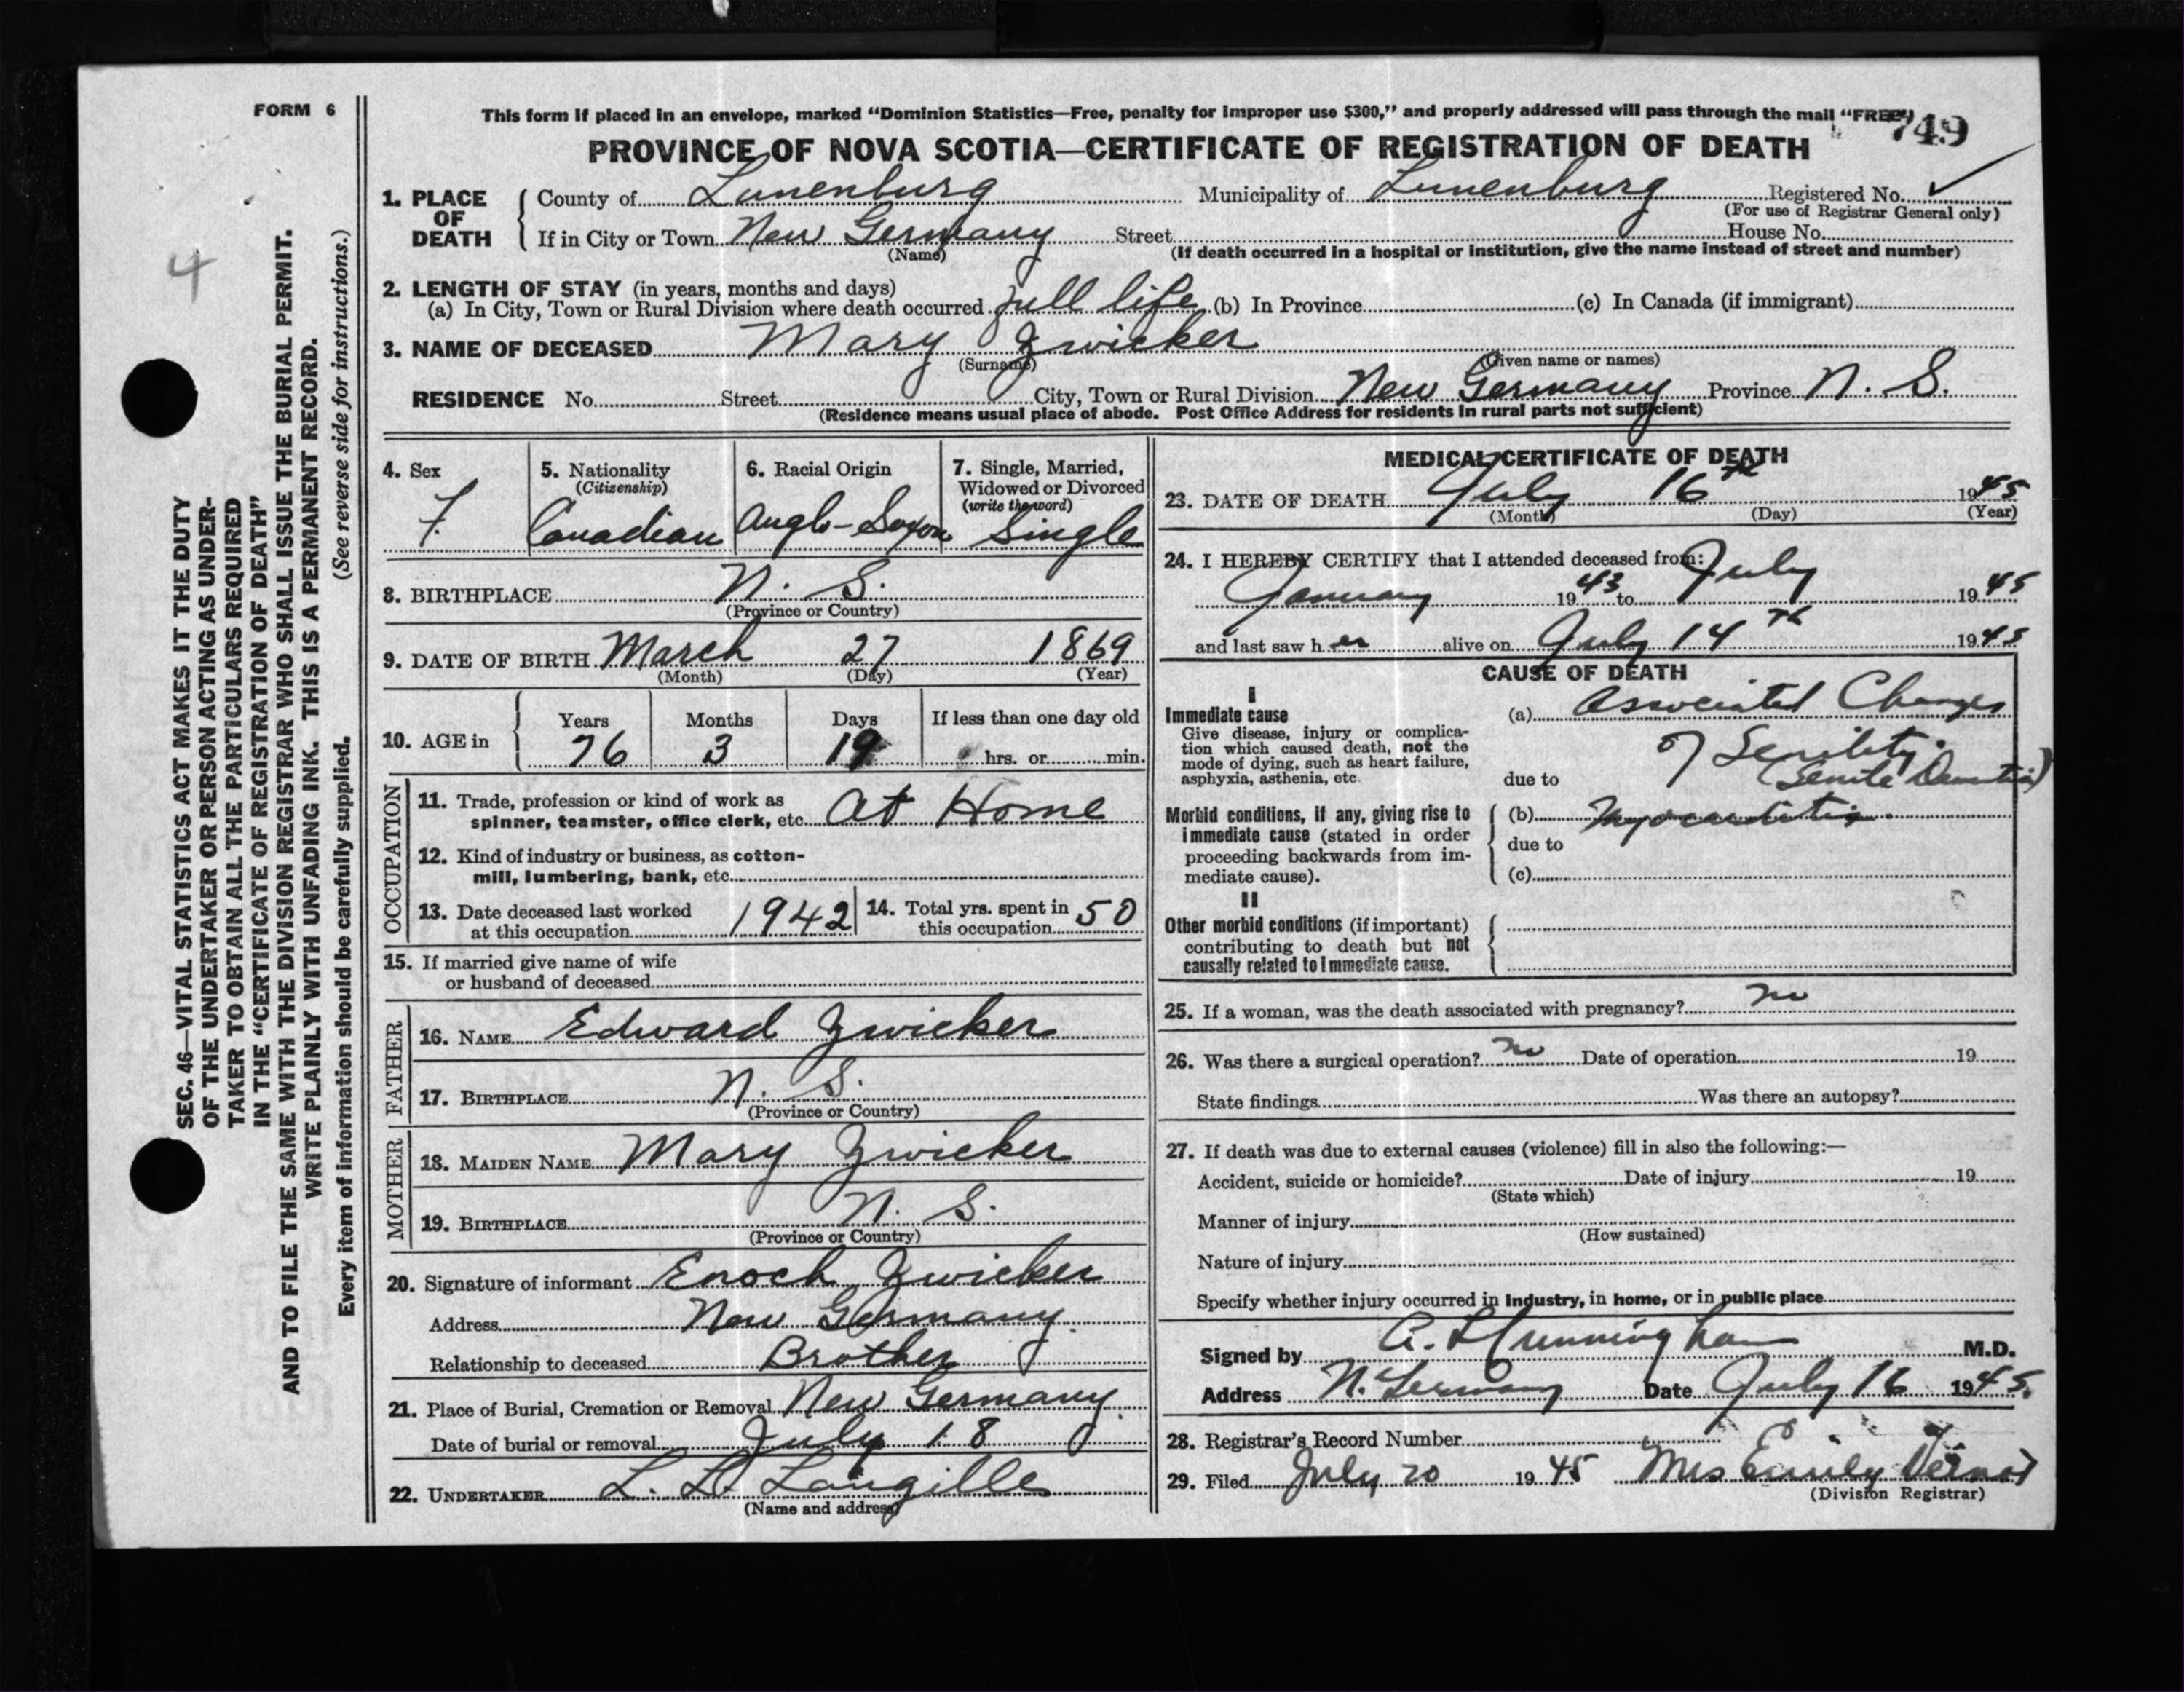 FORM 6
This form if placed in an envelope, marked "Dominion Statistics—Free, penalty for improper use $300," and properly addressed will pass through the mail "FREE"
749
PROVINCE OF NOVA SCOTIA—CERTIFICATE OF REGISTRATION OF DEATH
1. PLACE OF DEATH
County of Lunenburg Municipality of Lunenburg Registered No. ✓
(For use of Registrar General only)
If in City or Town New Germany Street House No.
(Name) (If death occurred in a hospital or institution, give the name instead of street and number)
2. LENGTH OF STAY (in years, months and days)
(a) In City, Town or Rural Division where death occurred full life (b) In Province (c) In Canada (if immigrant)
3. NAME OF DECEASED Mary Zwicker
(Surname) (Given name or names)
RESIDENCE No. Street City, Town or Rural Division New Germany Province N. S.
(Residence means usual place of abode. Post Office Address for residents in rural parts not sufficient)
4. Sex
F.
5. Nationality
(Citizenship)
Canadian
6. Racial Origin
Anglo-Saxon
7. Single, Married,
Widowed or Divorced
(write the word)
Single
8. BIRTHPLACE N. S.
(Province or Country)
9. DATE OF BIRTH March 27 1869
(Month) (Day) (Year)
10. AGE in
Years Months Days If less than one day old
76 3 19 hrs. or min.
OCCUPATION
11. Trade, profession or kind of work as
spinner, teamster, office clerk, etc. At Home
12. Kind of industry or business, as cotton-
mill, lumbering, bank, etc.
13. Date deceased last worked
at this occupation 1942
14. Total yrs. spent in
this occupation 50
15. If married give name of wife
or husband of deceased
FATHER
16. NAME Edward Zwicker
17. BIRTHPLACE N. S.
(Province or Country)
MOTHER
18. MAIDEN NAME Mary Zwicker
19. BIRTHPLACE N. S.
(Province or Country)
20. Signature of informant Enoch Zwicker
Address New Germany
Relationship to deceased Brother
21. Place of Burial, Cremation or Removal New Germany
Date of burial or removal July 18
22. UNDERTAKER L. L. Langille
(Name and address)
MEDICAL CERTIFICATE OF DEATH
23. DATE OF DEATH July 16th 1945
(Month) (Day) (Year)
24. I HEREBY CERTIFY that I attended deceased from:
January 1943 to July 1945
and last saw her alive on July 14th 1945
CAUSE OF DEATH
I
Immediate cause
Give disease, injury or complica-
tion which caused death, not the
mode of dying, such as heart failure,
asphyxia, asthenia, etc.
(a) Associated Changes
of Senility.
due to (Senile Dementia)
Morbid conditions, if any, giving rise to
immediate cause (stated in order
proceeding backwards from im-
mediate cause).
(b) Myocarditis.
due to
(c)
II
Other morbid conditions (if important)
contributing to death but not
causally related to immediate cause.
25. If a woman, was the death associated with pregnancy? no
26. Was there a surgical operation? no Date of operation 19
State findings Was there an autopsy?
27. If death was due to external causes (violence) fill in also the following:—
Accident, suicide or homicide? Date of injury 19
(State which)
Manner of injury
(How sustained)
Nature of injury
Specify whether injury occurred in Industry, in home, or in public place
Signed by M.D.
Address N. Germany Date July 16 1945.
28. Registrar's Record Number
29. Filed July 20 1945 Mrs Emily
(Division Registrar)
4
SEC. 46—VITAL STATISTICS ACT MAKES IT THE DUTY
OF THE UNDERTAKER OR PERSON ACTING AS UNDER-
TAKER TO OBTAIN ALL THE PARTICULARS REQUIRED
IN THE "CERTIFICATE OF REGISTRATION OF DEATH"
AND TO FILE THE SAME WITH THE DIVISION REGISTRAR WHO SHALL ISSUE THE BURIAL PERMIT.
WRITE PLAINLY WITH UNFADING INK. THIS IS A PERMANENT RECORD.
Every item of information should be carefully supplied. (See reverse side for instructions.)